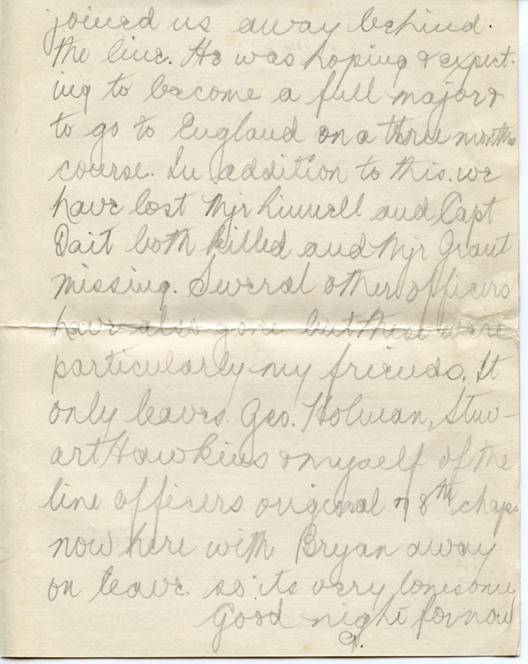 joined us away behind.
the line. He was hoping & expect-
ing to become a full major &
to go to England on a three months
course. In addition to this we
have lost Mjr Linnell and Capt
Tait both killed and Mjr Grant
missing. Several other officers
have also gone but these were
particularly my friends. It
only leaves Geo. Holman, Stew-
art Hawkins & myself of the
line officers original 78th chaps
now here with Bryan away
on leave. so its very lonesome
Good night for now